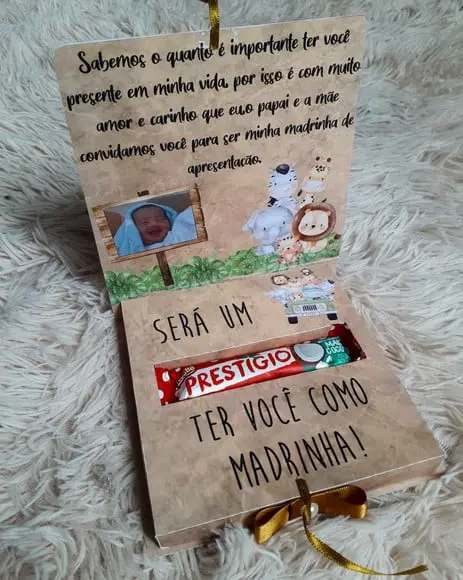 Sabemos o quanto é importante ter você
presente em minha vida, por isso é com muito
amor e carinho que eu,o papai e a mãe
convidamos você para ser minha madrinha de
apresentacão.
SERÁ UM
PRESTÍGIO
MAIS
COCO
TER VOCÊ COMO
MADRINHA!